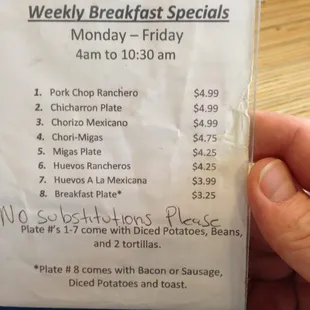 Weekly Breakfast Specials
Monday – Friday
4am to 10:30 am
1. Pork Chop Ranchero $4.99
2. Chicharron Plate $4.99
3. Chorizo Mexicano $4.99
4. Chori-Migas $4.75
5. Migas Plate $4.25
6. Huevos Rancheros $4.25
7. Huevos A La Mexicana $3.99
8. Breakfast Plate* $3.25
No substitutions Please
Plate #'s 1-7 come with Diced Potatoes, Beans,
and 2 tortillas.
*Plate # 8 comes with Bacon or Sausage,
Diced Potatoes and toast.